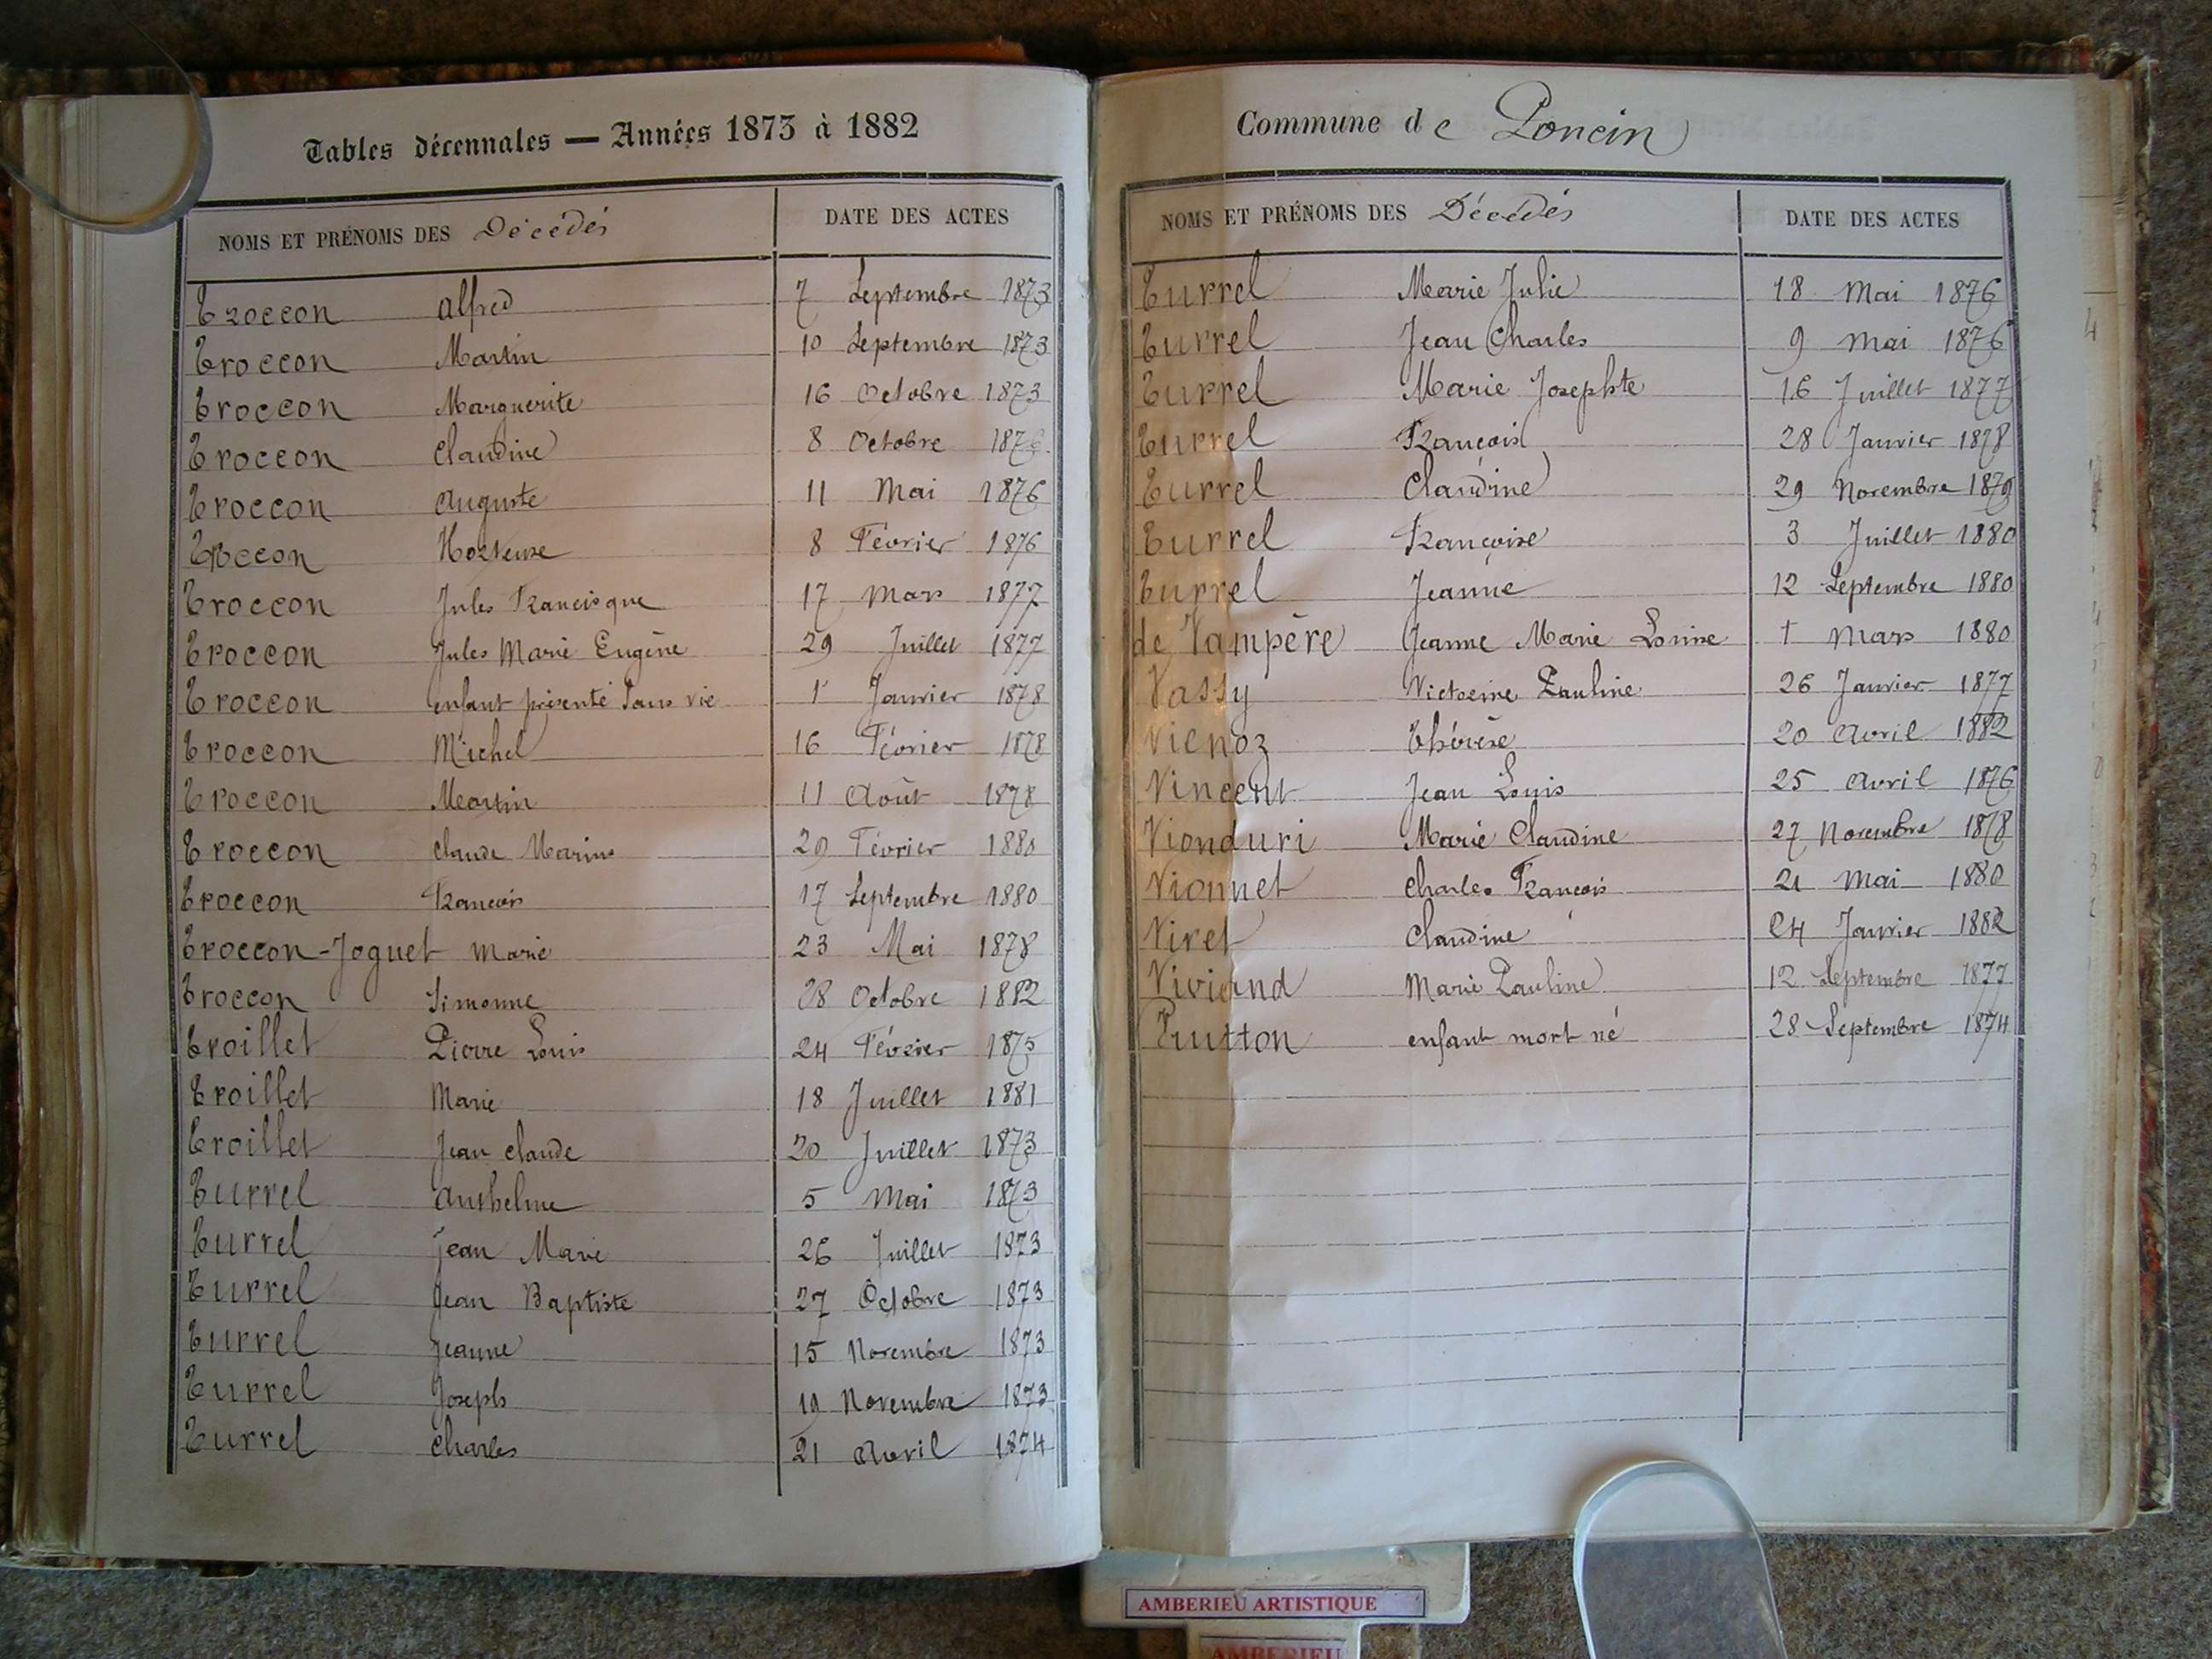 Tables décennales — Années 1873 à 1882
NOMS ET PRÉNOMS DES Décédés DATE DES ACTES
Troccon Alfred 7 Septembre 1873
Troccon Martin 10 Septembre 1873
Troccon Marguerite 16 Octobre 1873
Troccon Claudine 8 Octobre 1876
Troccon Auguste 11 Mai 1876
Troccon Hortense 8 Février 1876
Troccon Jules Francisque 17 Mars 1877
Troccon Jules Marie Eugène 29 Juillet 1877
Troccon enfant présenté sans vie 1r Janvier 1878
Troccon Michel 16 Février 1878
Troccon Martin 11 Août 1878
Troccon Claude Marius 29 Février 1880
Troccon François 17 Septembre 1880
Troccon-Joguet Marie 23 Mai 1878
Troccon Simonne 28 Octobre 1882
Troillet Pierre Louis 24 Février 1875
Troillet Marie 18 Juillet 1881
Troillet Jean Claude 20 Juillet 1873
Turrel Anthelme 5 Mai 1873
Turrel Jean Marie 26 Juillet 1873
Turrel Jean Baptiste 27 Octobre 1873
Turrel Jeanne 15 Novembre 1873
Turrel Joseph 19 Novembre 1873
Turrel Charles 21 Avril 1874
Commune de Poncin
NOMS ET PRÉNOMS DES Décédés DATE DES ACTES
Turrel Marie Julie 18 Mai 1876
Turrel Jean Charles 9 Mai 1876
Turrel Marie Josephte 16 Juillet 1877
Turrel François 28 Janvier 1878
Turrel Claudine 29 Novembre 1879
Turrel Françoise 3 Juillet 1880
Turrel Jeanne 12 Septembre 1880
de Vampère Jeanne Marie Louise 1 Mars 1880
Vassy Victorine Pauline 26 Janvier 1877
Vienoz Thérèse 20 Avril 1882
Vincent Jean Louis 25 Avril 1876
Vionduri Marie Claudine 27 Novembre 1878
Vionnet Charles François 21 Mai 1880
Viret Claudine 24 Janvier 1882
Viviand Marie Pauline 12 Septembre 1877
enfant mort né 28 Septembre 1874
AMBERIEU ARTISTIQUE
AMBERIEU